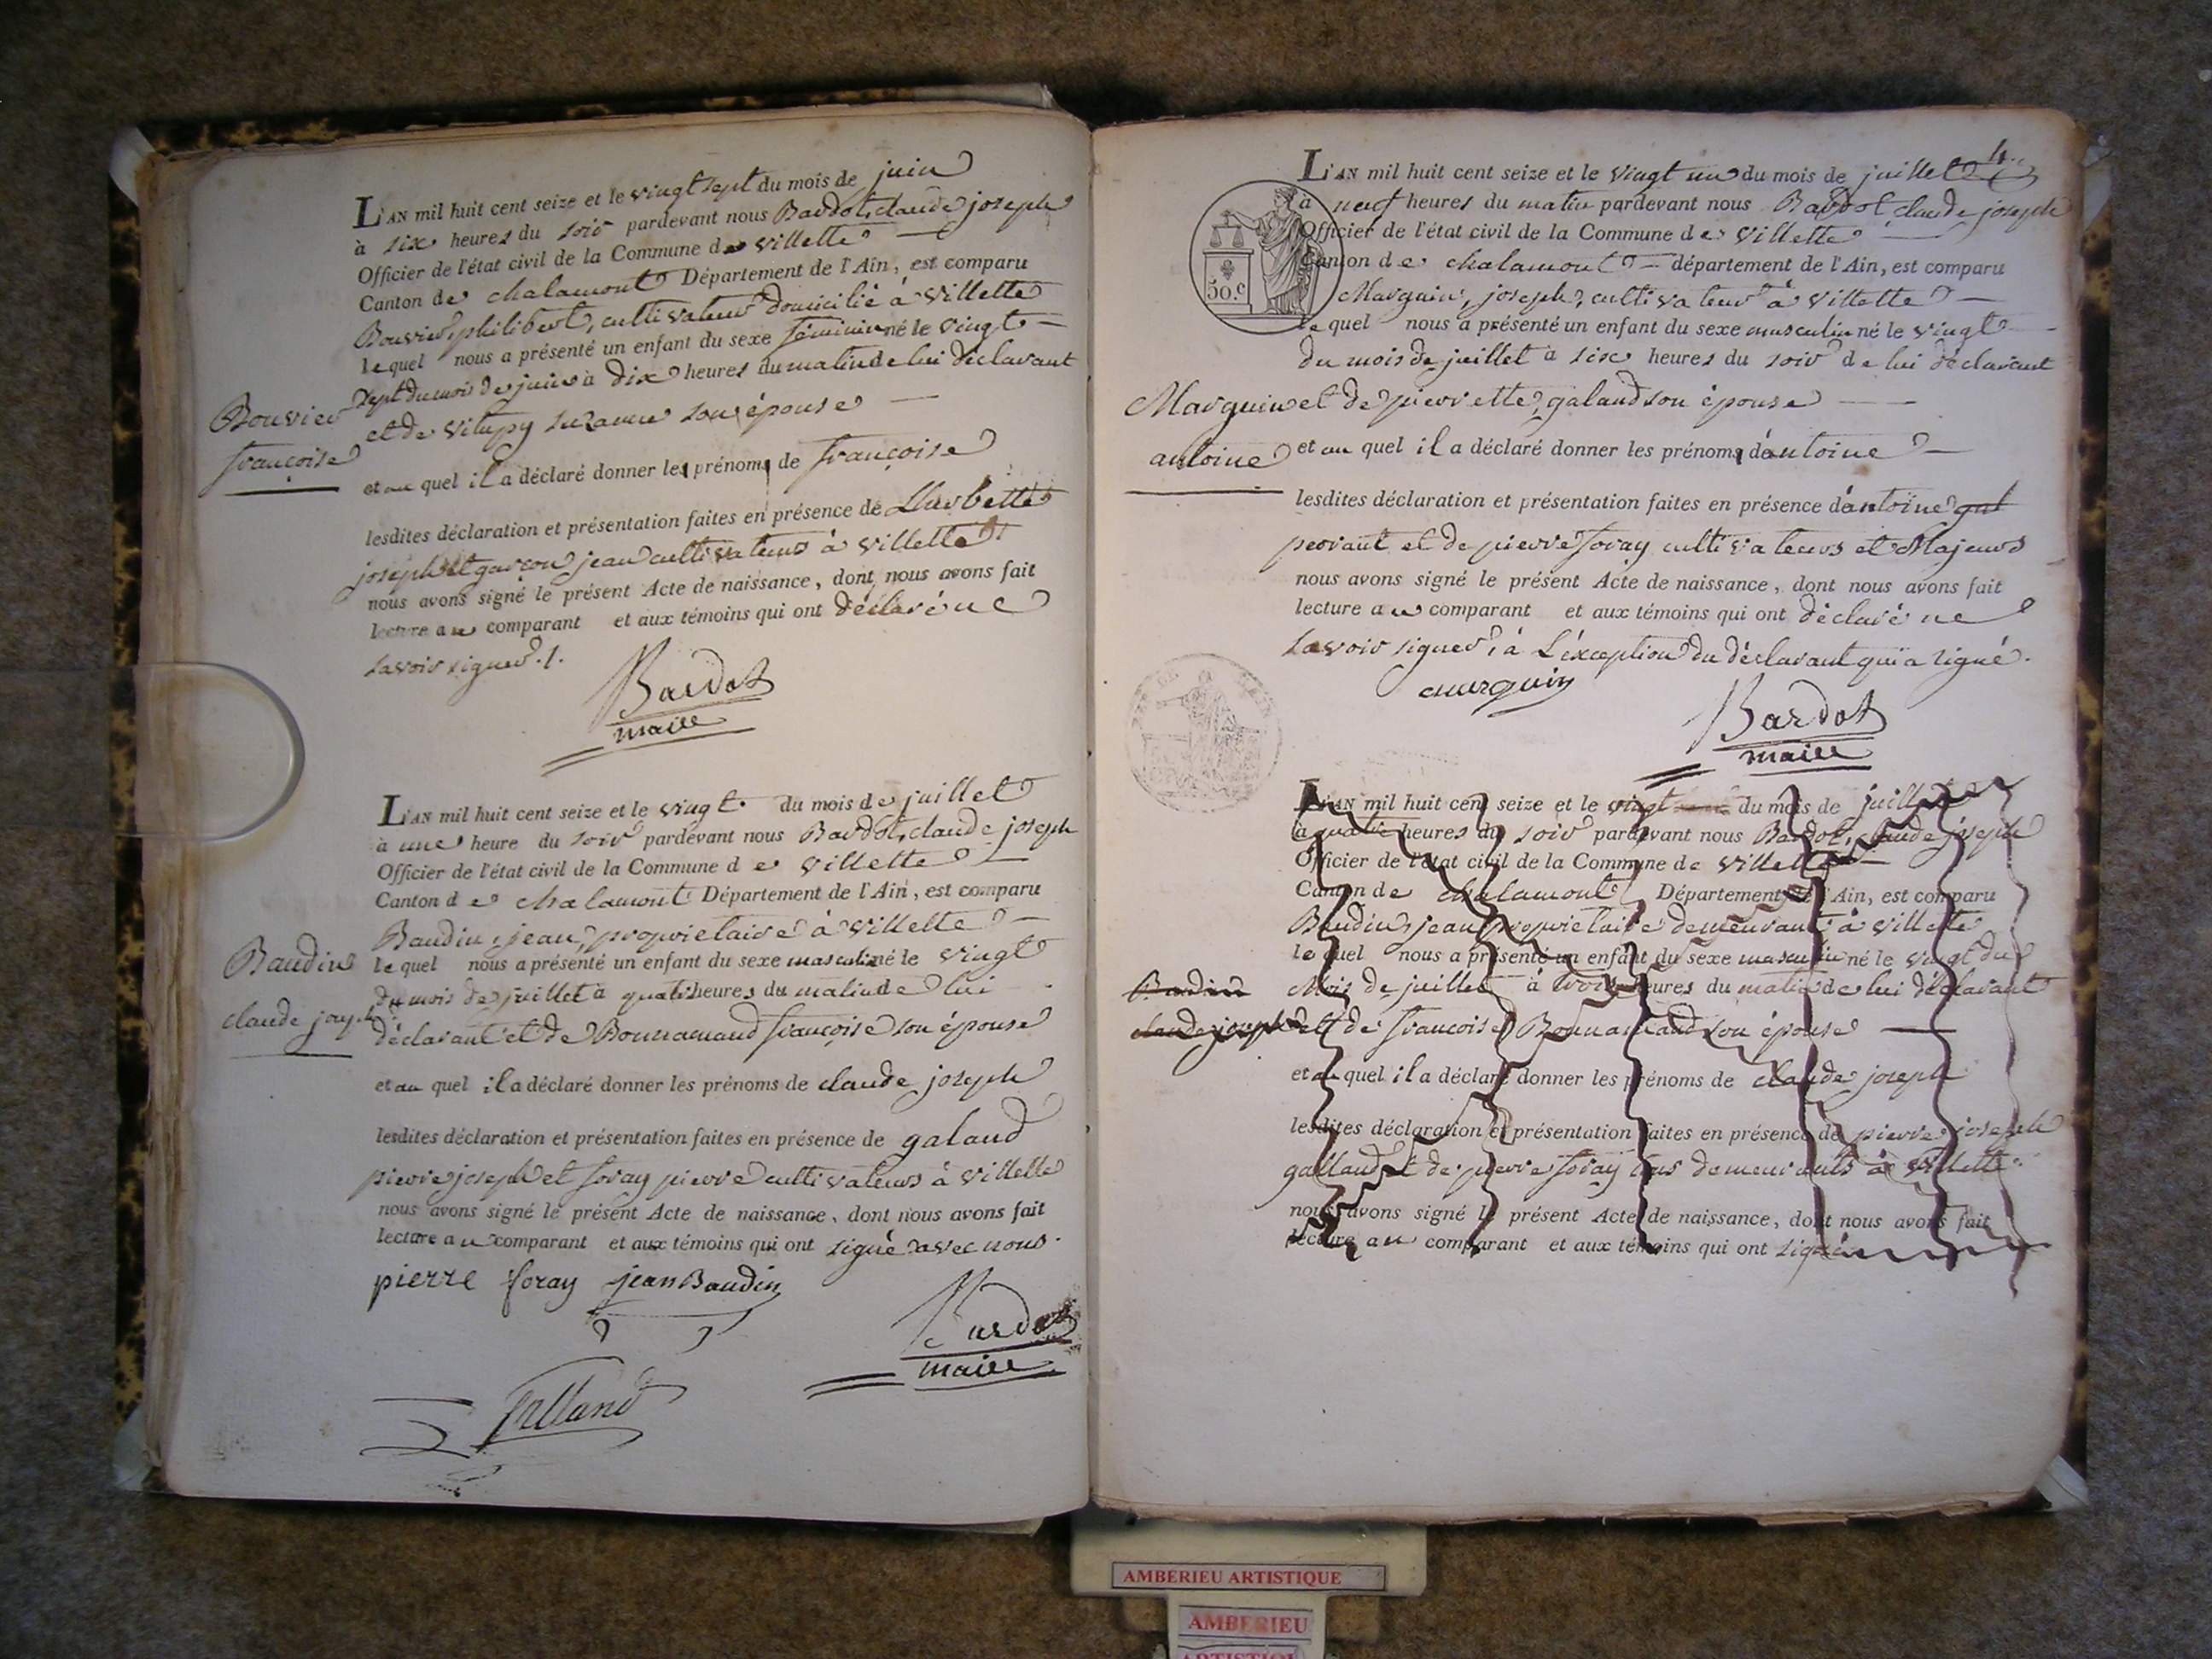 L'AN mil huit cent seize et le vingt sept du mois de juin
à six heures du soir pardevant nous Bardot, claude joseph
Officier de l'état civil de la Commune de villette
Canton de chalamont Département de l'Ain, est comparu
Bouvier, philibert, cultivateur domicilié à villette
lequel nous a présenté un enfant du sexe féminin né le vingt
sept du mois de juin à dix heures du matin de lui déclarant
et de vitupy suzanne son épouse
Bouvier
françoise
et au quel il a déclaré donner les prénoms de françoise
lesdites déclaration et présentation faites en présence de
joseph et garçon jean cultivateurs à villette
nous avons signé le présent Acte de naissance, dont nous avons fait
lecture au comparant et aux témoins qui ont déclaré ne
savoir signer ./.
Bardot
maire
L'AN mil huit cent seize et le vingt du mois de juillet
à une heure du soir pardevant nous Bardot, claude joseph
Officier de l'état civil de la Commune de villette
Canton de chalamont Département de l'Ain, est comparu
Baudin, jean, proprietaire à villette
Baudin
claude joseph
lequel nous a présenté un enfant du sexe masculin né le vingt
du mois de juillet à quatre heures du matin de lui
déclarant et de Bonnamand françoise son épouse
et au quel il a déclaré donner les prénoms de claude joseph
lesdites déclaration et présentation faites en présence de galand
pierre joseph et foray pierre cultivateurs à villette
nous avons signé le présent Acte de naissance, dont nous avons fait
lecture au comparant et aux témoins qui ont signé avec nous.
pierre foray jean Baudin
Bardot
maire
Galland
4
L'AN mil huit cent seize et le vingt un du mois de juillet
à neuf heures du matin pardevant nous Bardot claude joseph
Officier de l'état civil de la Commune de villette
Canton de chalamont département de l'Ain, est comparu
50.c
Marguin, joseph, cultivateur à villette
lequel nous a présenté un enfant du sexe masculin né le vingt
du mois de juillet à six heures du soir de lui déclarant
et de pierrette, galand son épouse
Marguin
antoine
et au quel il a déclaré donner les prénoms d'antoine
lesdites déclaration et présentation faites en présence d'antoine gut
perrant et de pierre foray cultivateurs et Majeurs
nous avons signé le présent Acte de naissance, dont nous avons fait
lecture au comparant et aux témoins qui ont déclaré ne
savoir signer, à L'exception du déclarant qui a signé.
marguin
Bardot
maire
L'AN mil huit cent seize et le vingt du mois de juillet
à quatre heures du soir pardevant nous Bardot, claude joseph
Officier de l'état civil de la Commune de villette
Canton de chalamont Département de l'Ain, est comparu
Baudin, jean proprietaire demeurant à villette
lequel nous a présenté un enfant du sexe masculin né le vingt du
Mois de juillet à trois heures du matin de lui déclarant
et de francoise Bonnamand son épouse
Baudin
claude joseph
et au quel il a déclaré donner les prénoms de claude joseph
lesdites déclaration et présentation faites en présence de pierre joseph
galland et de pierre foray tous demeurants à villette
nous avons signé le présent Acte de naissance, dont nous avons fait
lecture au comparant et aux témoins qui ont signé
AMBERIEU ARTISTIQUE
AMBERIEU
ARTISTIQUE